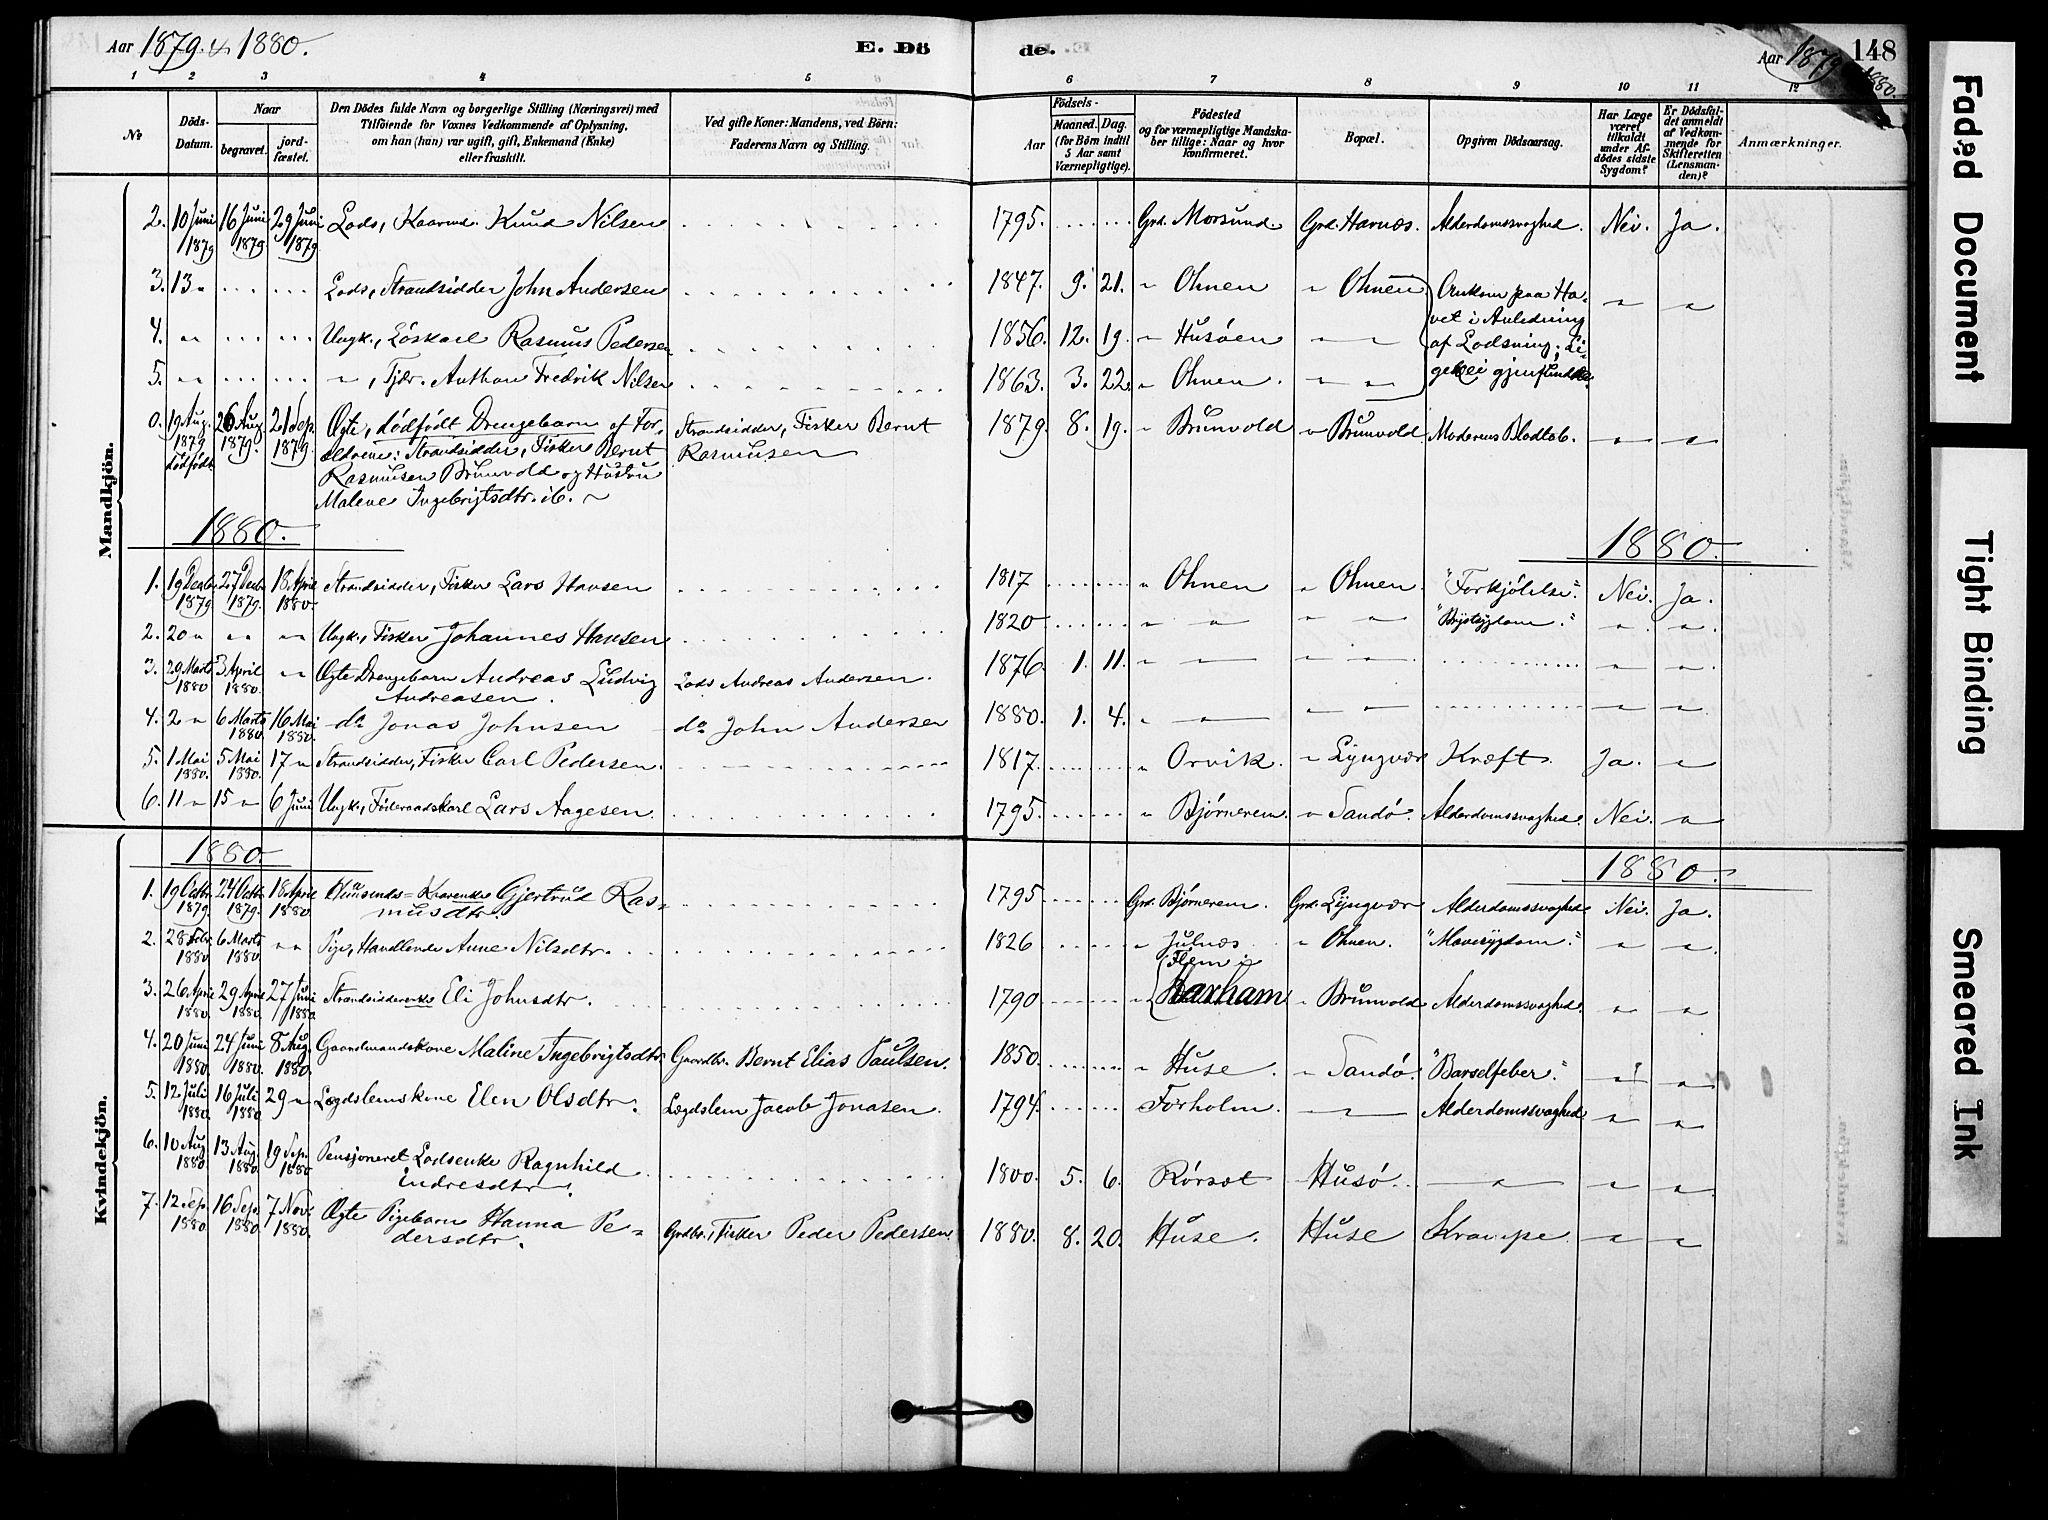 Aar 1879 & 1880.
E. Dö
de.
Aar 1879
148
1880.
1 2 3 4 5 6 7 8 9 10 11 12
No
Döds-
Datum.
Naar
begravet.
jord-
fæstet.
Den Dödes fulde Navn og borgerlige Stilling (Næringsvei) med
Tilföiende for Voxnes Vedkommende af Oplysning,
om han (hun) var ugift, gift, Enkemand (Enke)
eller fraskilt.
Ved gifte Koner: Mandens, ved Börn:
Faderens Navn og Stilling.
Födsels-
Aar
Maaned. Dag.
(for Börn indtil
5 Aar samt
Værnepligtige).
Födested
og for værnepligtige Mandska-
ber tillige: Naar og hvor
konfirmeret.
Bopæl.
Opgiven Dödsaarsag.
Har Læge
været
tilkaldt
under Af-
dödes sidste
Sygdom?
Er Dödsfal-
det anmeldt
af Vedkom-
mende for
Skifteretten
(Lensman-
den)?
Anmærkninger.
Mandkjön.
2. 10 Juni 1879 16 Juni 1879 29 Juni 1879 Lods, Kaarmd. Knud Nilsen 1795. Grd. Morsund Grd. Harnæs. Alderdomssvaghed. Nei. Ja.
3. 13 " Lods, Strandsidder John Andersen 1847. 9. 21. " Ohnen " Ohnen Omkom paa Ha-
vet i Anledning
af Lodsning; Li-
gene ei gjenfundne. " "
4. " " Ungk., Löskarl Rasmus Pedersen 1856. 12. 19. " Husöen " "
5. " " ", Tjzr. Anthon Fredrik Nilsen 1863. 3. 22. " Ohnen. " "
0. 19 Aug. 1879 Dødfødt 26 Aug 1879. 21 Sep. 1879. Ægte, dödfödt Drengebarn af For-
ældrene: Strandsidder, Fisker Bernt
Rasmusen Brunvold og Hustru
Malene Ingebrigtsdtr. ib. Strandsidder, Fisker Bernt
Rasmusen 1879. 8. 19. " Brunvold " Brunvold Moderens Blodtab. " "
1880.
1880.
1. 19 Decbr 1879 27 Decbr 1879. 18 April 1880. Strandsidder, Fisker Lars Hansen 1817 " Ohnen " Ohnen "Forkjölelse." Nei. Ja.
2. 20 " " " " " Ungk., Fisker Johannes Hansen 1820 " " " " "Brystsygdom." " "
3. 29 Marts 1880 3 April 1880. " " Ægte Drengebarn Andreas Ludvig
Andreasen. Lods Andreas Andersen. 1876. 1. 11. " " " " " "
4. 2 " 6 Marts 1880. 16 Mai 1880. do Jonas Johnsen do John Andersen 1880. 1. 4. " " " " " "
5. 1 Mai 1880. 5 Mai 1880. 17 " Strandsidder, Fisker Carl Pedersen. 1817. " Orvik. " Lyngvær Kræft. Ja. "
6. 11 " 15 " 6 Juni Ungk., Föderaadskarl Lars Aagesen. 1795. " Bjørnerem. " Sandø. Alderdomssvaghed. Nei. "
Kvindekjön.
1880.
1880.
1. 19 Octbr. 1879. 24 Octbr. 1879. 18 April 1880. Huusmds-Kaarenke Gjertrud Ras-
musdtr. 1795. Grd. Bjørnerem. Grd. Lyngvær Alderdomssvaghed Nei. Ja.
2. 28 Febr. 1880 6 Marts 1880. " " Pige, Handlende Anne Nilsdtr. 1826 " Julnæs. " Ohnen. "Mavesygdom." " "
3. 26 April 1880. 29 April 1880. 27 Juni 1880. Strandsidderenke Eli Johnsdtr. 1790 " Flem i
Harham " Brunvold Alderdomssvaghed. " "
4. 20 Juni 1880. 24 Juni 1880. 8 Aug. 1880. Gaardmandskone Maline Ingebrigtsdtr. Gaardbr. Bernt Elias Paulsen. 1850. " Huse. " Sandø. "Barselfeber." " "
5. 12 Juli 1880. 16 Juli 1880 29 " Lægdslemskone Elen Olsdtr. Lægdslem Jacob Jonasen. 1794. Forholm. " Alderdomssvaghed " "
6. 10 Aug 1880. 13 Aug. 1880. 19 Sep. 1880 Pensjoneret Lodsenke Ragnhild
Endresdtr. 1800. 5. 6. Rørsæt Husø. " " "
7. 12 Sep. 1880. 16 Sep. 1880 7 Nov. 1880. Ægte Pigebarn Hanna Pe-
dersdtr. Grdbr., Fisker Peder Pedersen. 1880. 8. 20. Huse. Huse Krampe " "
Faded Document
Tight Binding
Smeared Ink